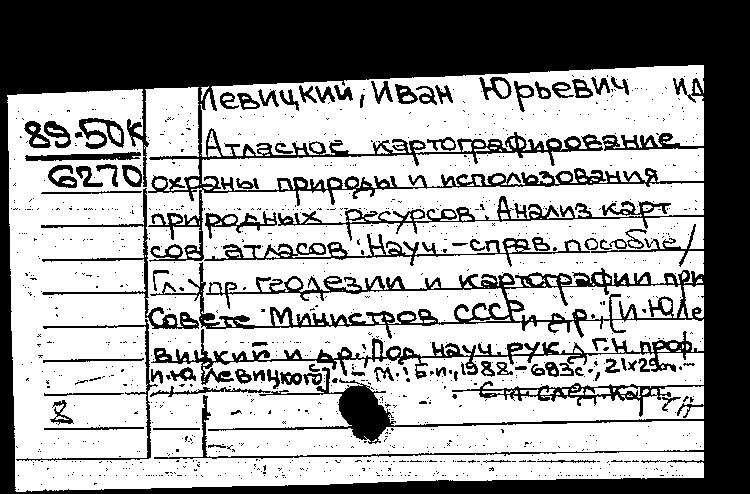 Левицкий, Иван Юрьевич ИД
89-50К
6270
Атласное картографирование
охраны природы и использования
природных ресурсов: Анализ карт
сов. атласов: Науч.-справ. пособие/
Гл. упр. геодезии и картографии при
Совете Министров СССР и др.; [И.Ю. Ле
вицкий и др.; Под науч. рук. д. г. н. проф.
И.Ю. Левицкого]. - М.: Б. и., 1988. - 683 с.; 21х29 см. -
См. след. карт.
8